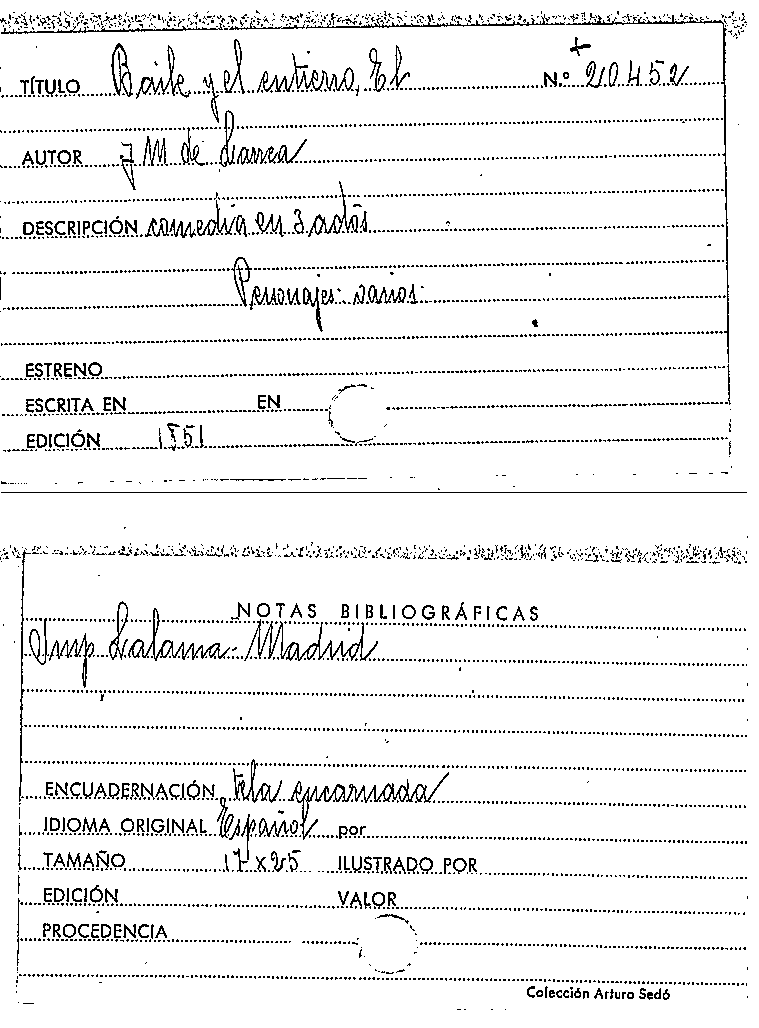 TÍTULO Baile y el entierro, El N.º 20452
AUTOR J M de Larrea
DESCRIPCIÓN comedia en 3 actos
Personajes: varios.
ESTRENO
ESCRITA EN EN
EDICIÓN 1851
NOTAS BIBLIOGRÁFICAS
Imp Lalama - Madrid
ENCUADERNACIÓN tela encarnada
IDIOMA ORIGINAL Español por
TAMAÑO 17 x 25 ILUSTRADO POR
EDICIÓN VALOR
PROCEDENCIA
Colección Arturo Sedó